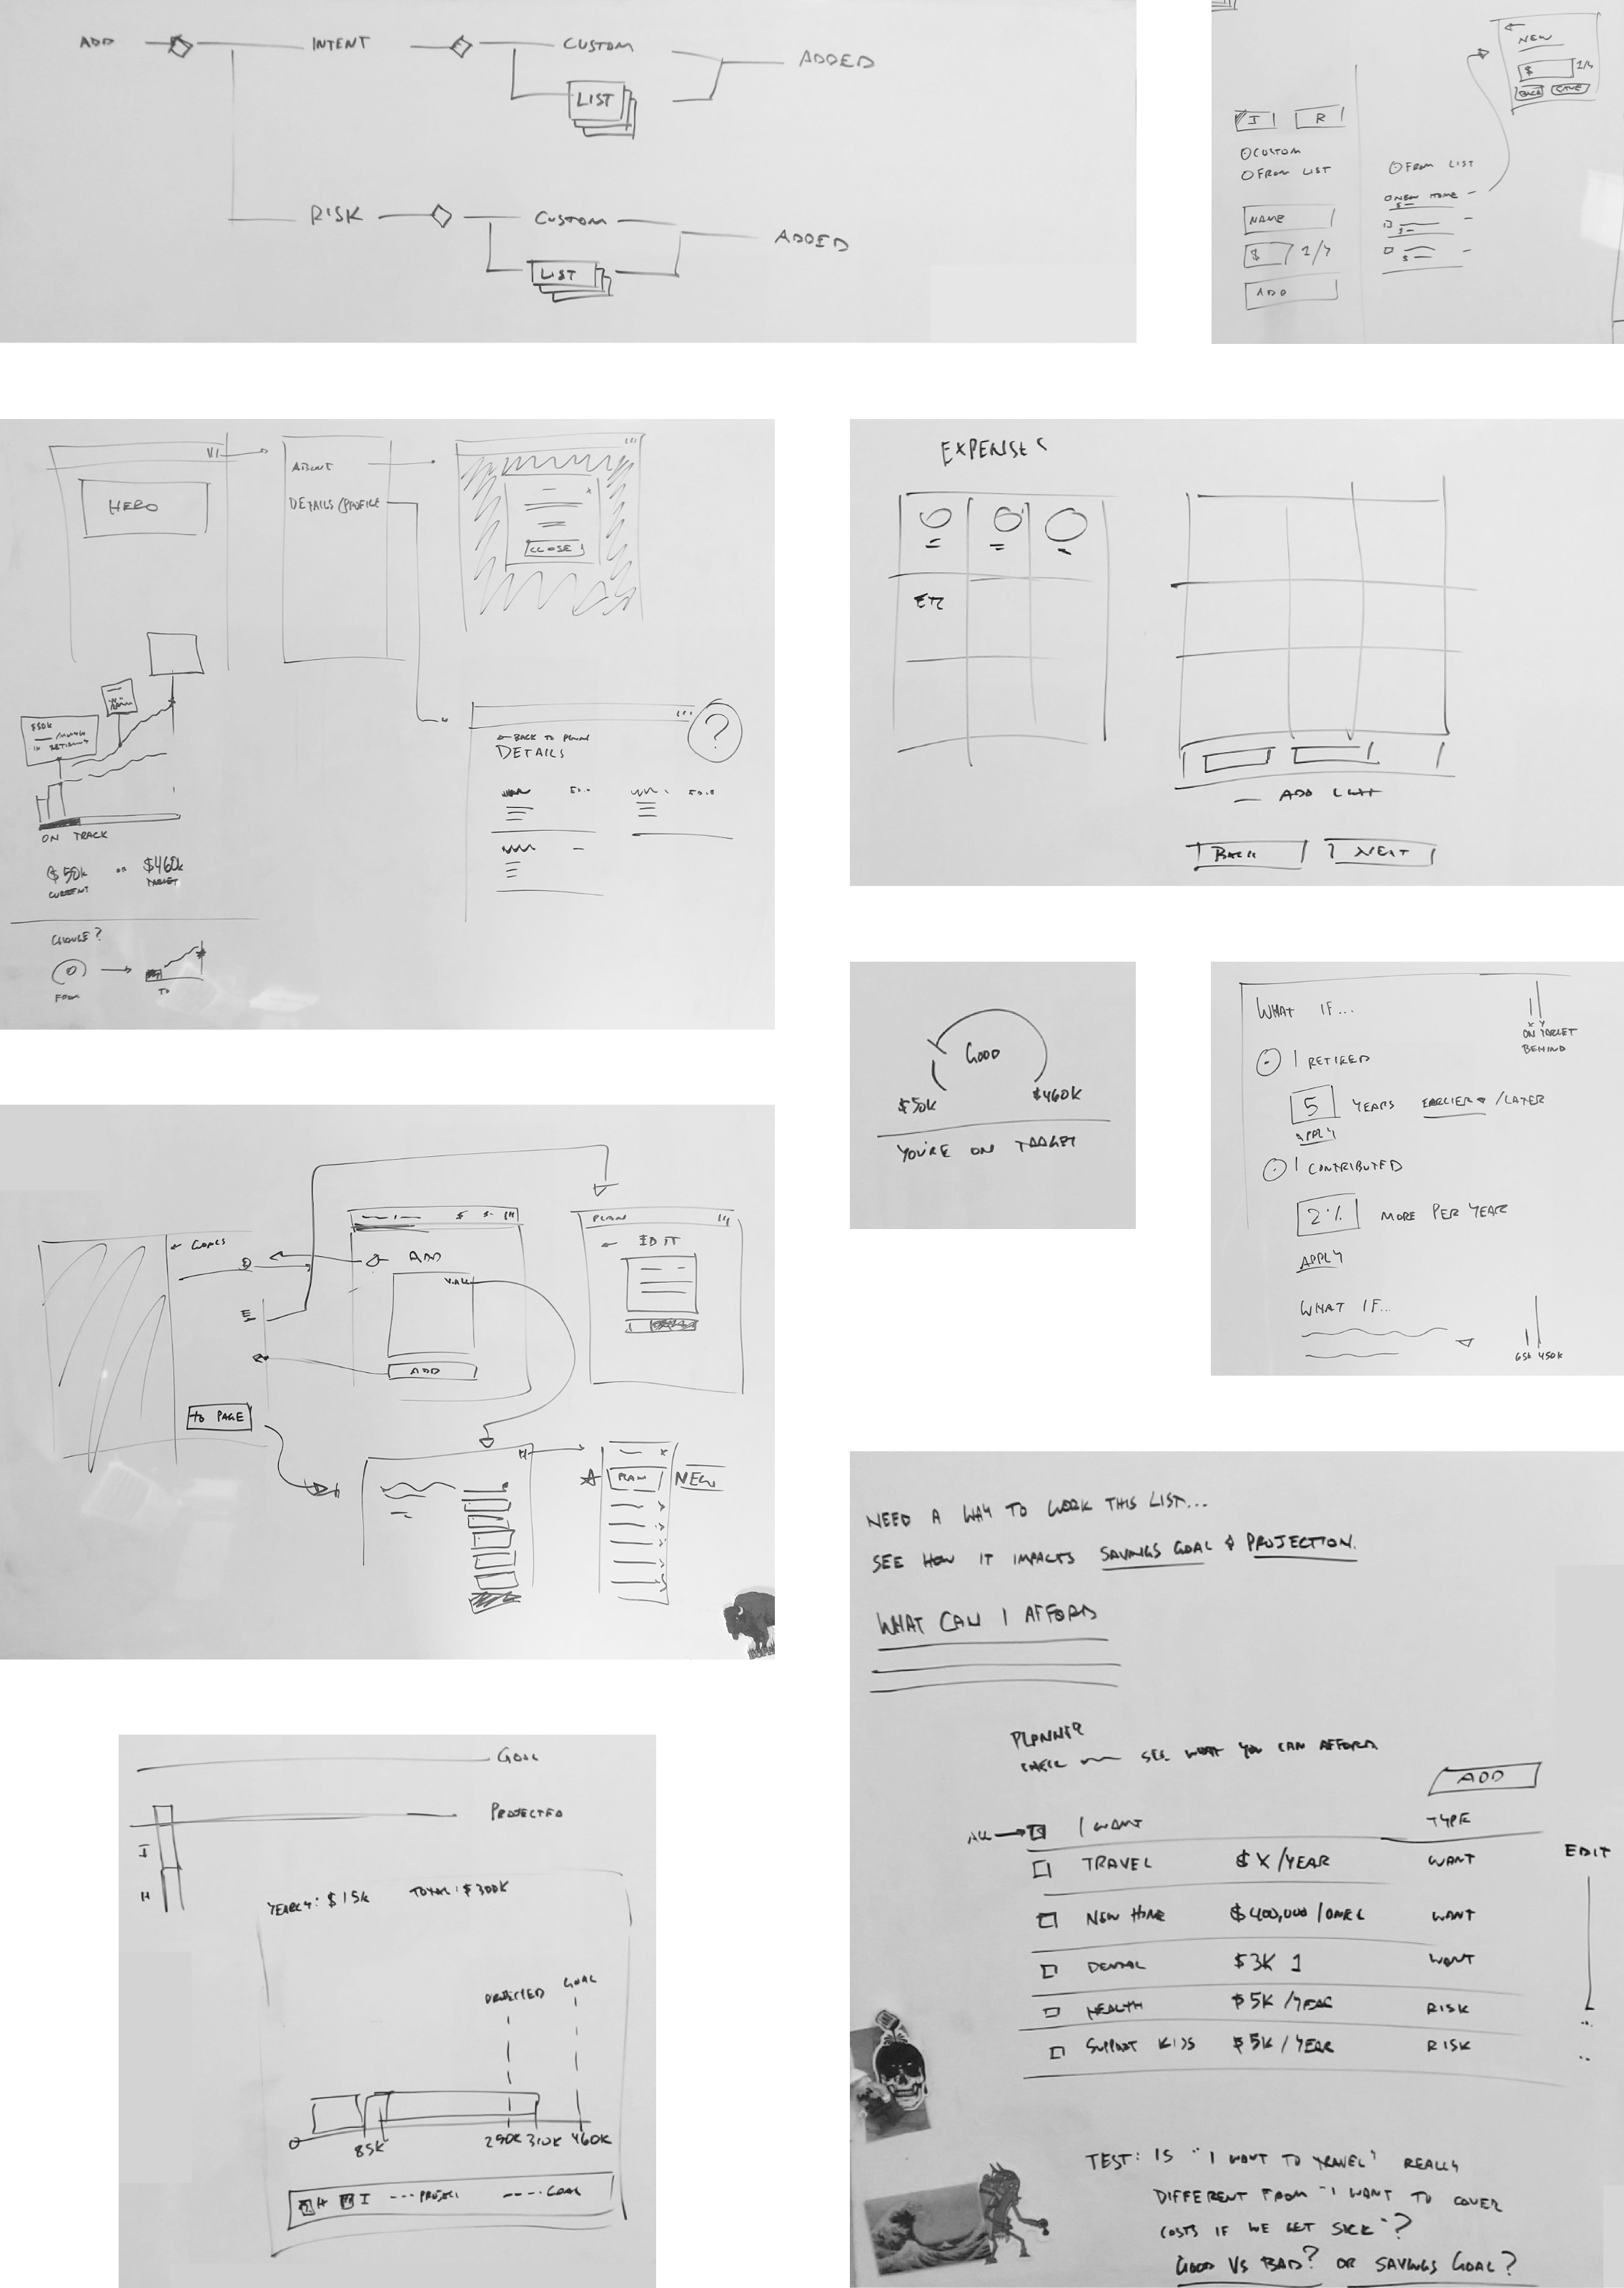 ADD
INTENT
CUSTOM
ADDED
LIST
RISK
CUSTOM
ADDED
LIST
NEW
$
BACK SAVE
I R
CUSTOM
FROM LIST
FROM LIST
NEW HOME
NAME
$
ADD
HERO
ABOUT
DETAILS/PROFILE
CLOSE
$50K
/MONTH
IN
ON TRACK
$50K OR $460K
CURRENT TARGET
CHANGE?
FROM TO
?
← BACK TO PLAN
DETAILS
EXPENSES
ETC
ADD
BACK NEXT
GOOD
$50K $460K
YOU'RE ON TARGET
WHAT IF...
X Y
ON TARGET
BEHIND
I RETIRED
5 YEARS EARLIER /LATER
APPLY
I CONTRIBUTED
2% MORE PER YEAR
APPLY
WHAT IF...
65K 450K
← GOALS
ADD
ADD
E
TO PAGE
PLAN
← EDIT
PLAN NEW
NEED A WAY TO WORK THIS LIST...
SEE HOW IT IMPACTS SAVINGS GOAL & PROJECTION.
WHAT CAN I AFFORD
PLANNER
CHECK SEE WHAT YOU CAN AFFORD
ADD
ALL → I WANT TYPE
EDIT
TRAVEL $X/YEAR WANT
NEW HOME $400,000/ONCE WANT
DENTAL $3K 1 WANT
HEALTH $5K/YEAR RISK
SUPPORT KIDS $5K/YEAR RISK
TEST: IS "I WANT TO TRAVEL" REALLY
DIFFERENT FROM "I WANT TO COVER
COSTS IF WE GET SICK"?
GOOD VS BAD? OR SAVINGS GOAL?
GOAL
PROJECTED
I
H
YEARLY: $15K TOTAL: $300K
PROJECTED GOAL
0 85K 290K 310K 460K
H I --- PROJECT ---- GOAL